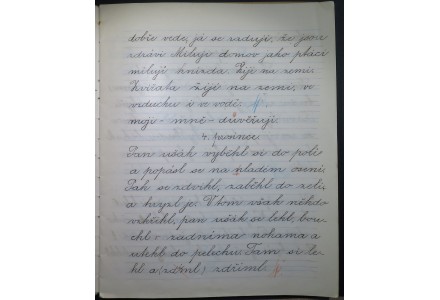 dobře vede, já se raduji, že jsou
zdrávi Miluji domov jako ptáci
milují hnízda. Žijí na zemi.
Zvířata žijí na zemi, ve
vzduchu i ve vodě.
mují - mně - důvěřují
4. prosince.
Pan ušák vyběhl si do polí
a popásl se na mladém osení.
Pak se zdvihl, zaběhl do zelí
a hryzl je. V tom však někdo
vykřikl, pan ušák se lekl, bou
chl v zadníma nohama a
utekl do pelechu. Tam si le-
hl a (zdříml) zdříml.